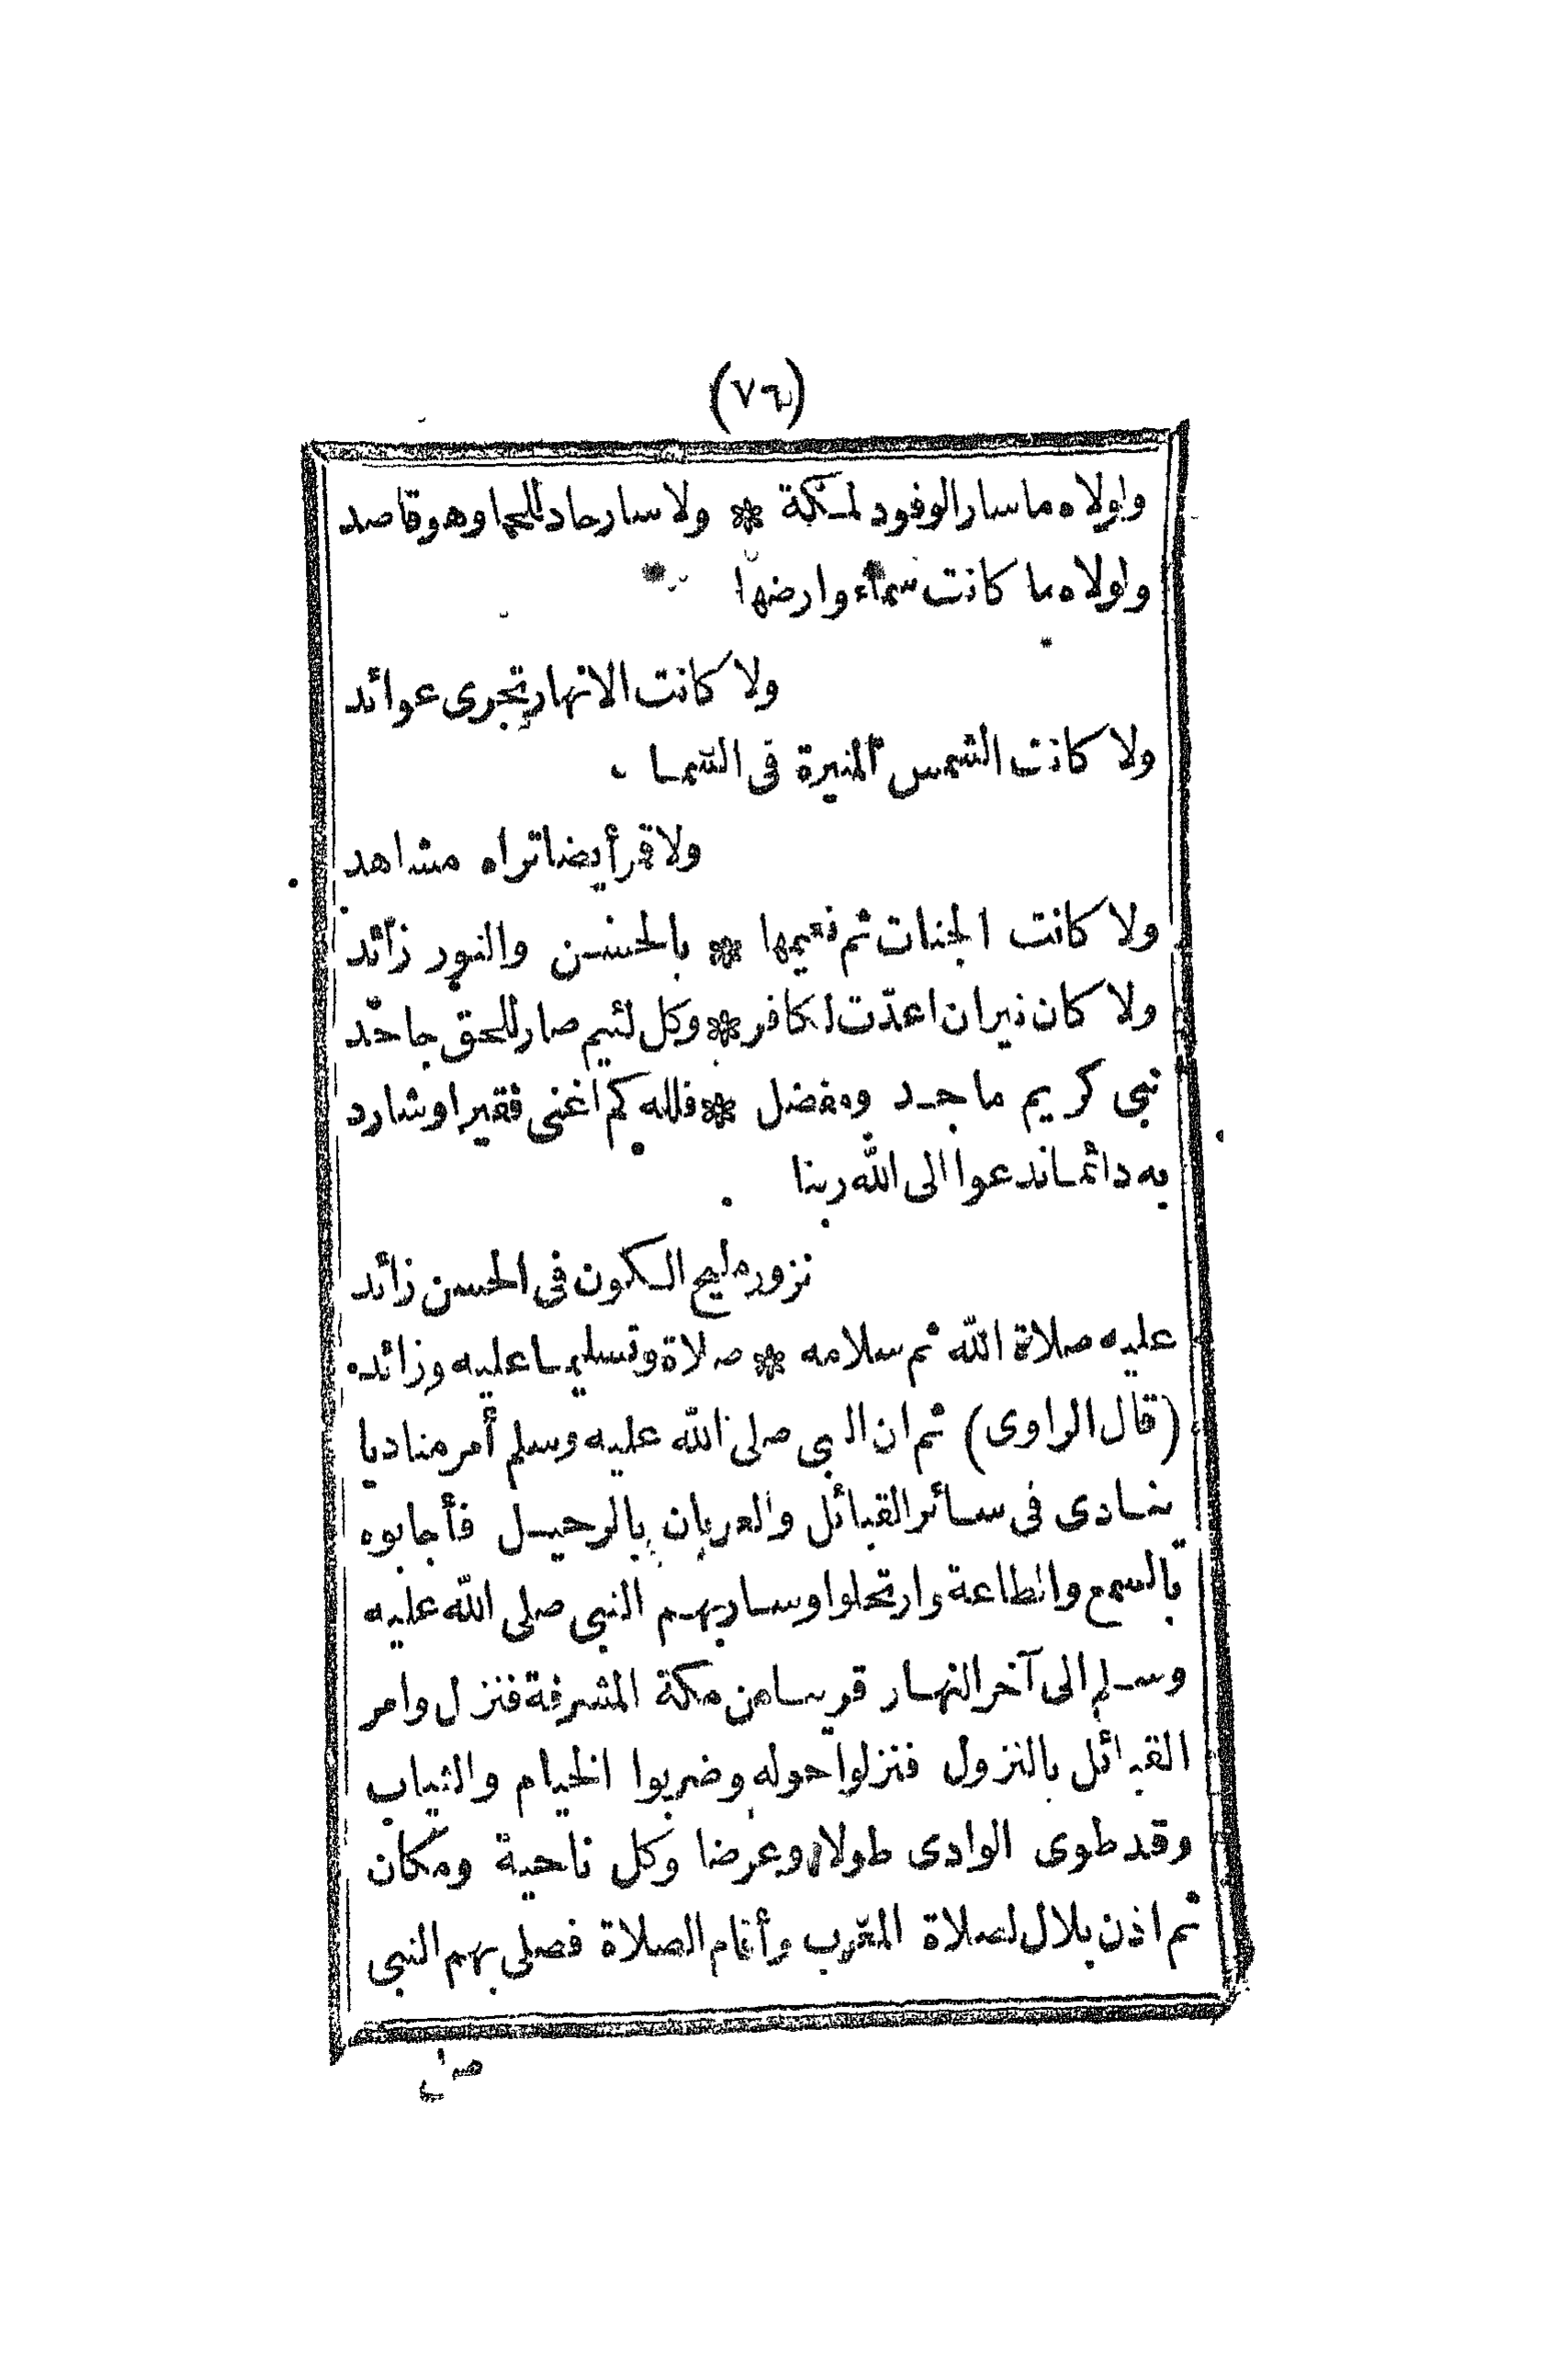 (٧٦)
ولولاه ما سار الوفود لمكة * ولا سار حاد للحما وهو قاصد
ولولاه ما كانت سماء وارضها
ولا كانت الانهار تجرى عوائد
ولا كانت الشمس المنيرة فى السما
ولا قمر أيضا تراه مشاهد
ولا كانت الجنات ثم نعيمها * بالحسن والنور زائد
ولا كان نيران اعدّت لكافر * وكل لئيم صار للحق جاحد
نبى كريم ماجد ومفضل * فلله كم اغنى فقيرا وشارد
به دائما ندعوا الى الله ربنا
نزور مليح الكون فى الحسن زائد
عليه صلاة الله ثم سلامه * صلاة وتسليما عليه وزائد
(قال الراوى) ثم ان النبى صلى الله عليه وسلم أمر مناديا
ينادى فى سائر القبائل والعربان بالرحيل فأجابوه
بالسمع والطاعة وارتحلوا وسار بهم النبى صلى الله عليه
وسلم الى آخر النهار قريبا من مكة المشرفة فنزل وامر
القبائل بالنزول فنزلوا حوله وضربوا الخيام والثياب
وقد طوى الوادى طولا وعرضا وكل ناحية ومكان
ثم اذن بلال لصلاة المغرب وأقام الصلاة فصلى بهم النبى
صلى